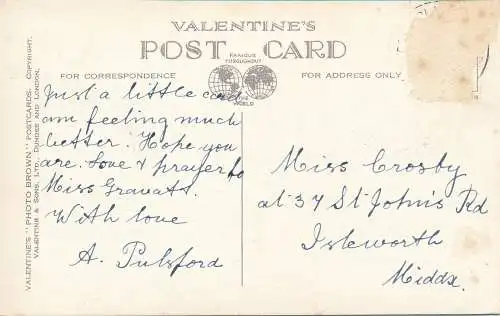 VALENTINE'S
POST CARD
FAMOUS
THROUGHOUT
THE
WORLD
FOR CORRESPONDENCE
FOR ADDRESS ONLY
VALENTINE'S "PHOTO-BROWN" POSTCARDS. COPYRIGHT.
VALENTINE & SONS, LTD., DUNDEE AND LONDON.
Just a little card
am feeling much
better. Hope you
are. Love & prayer to
Miss Gravatt.
With love
A. Pulsford
Miss Crosby
at 37 St John's Rd
Isleworth
Middx.